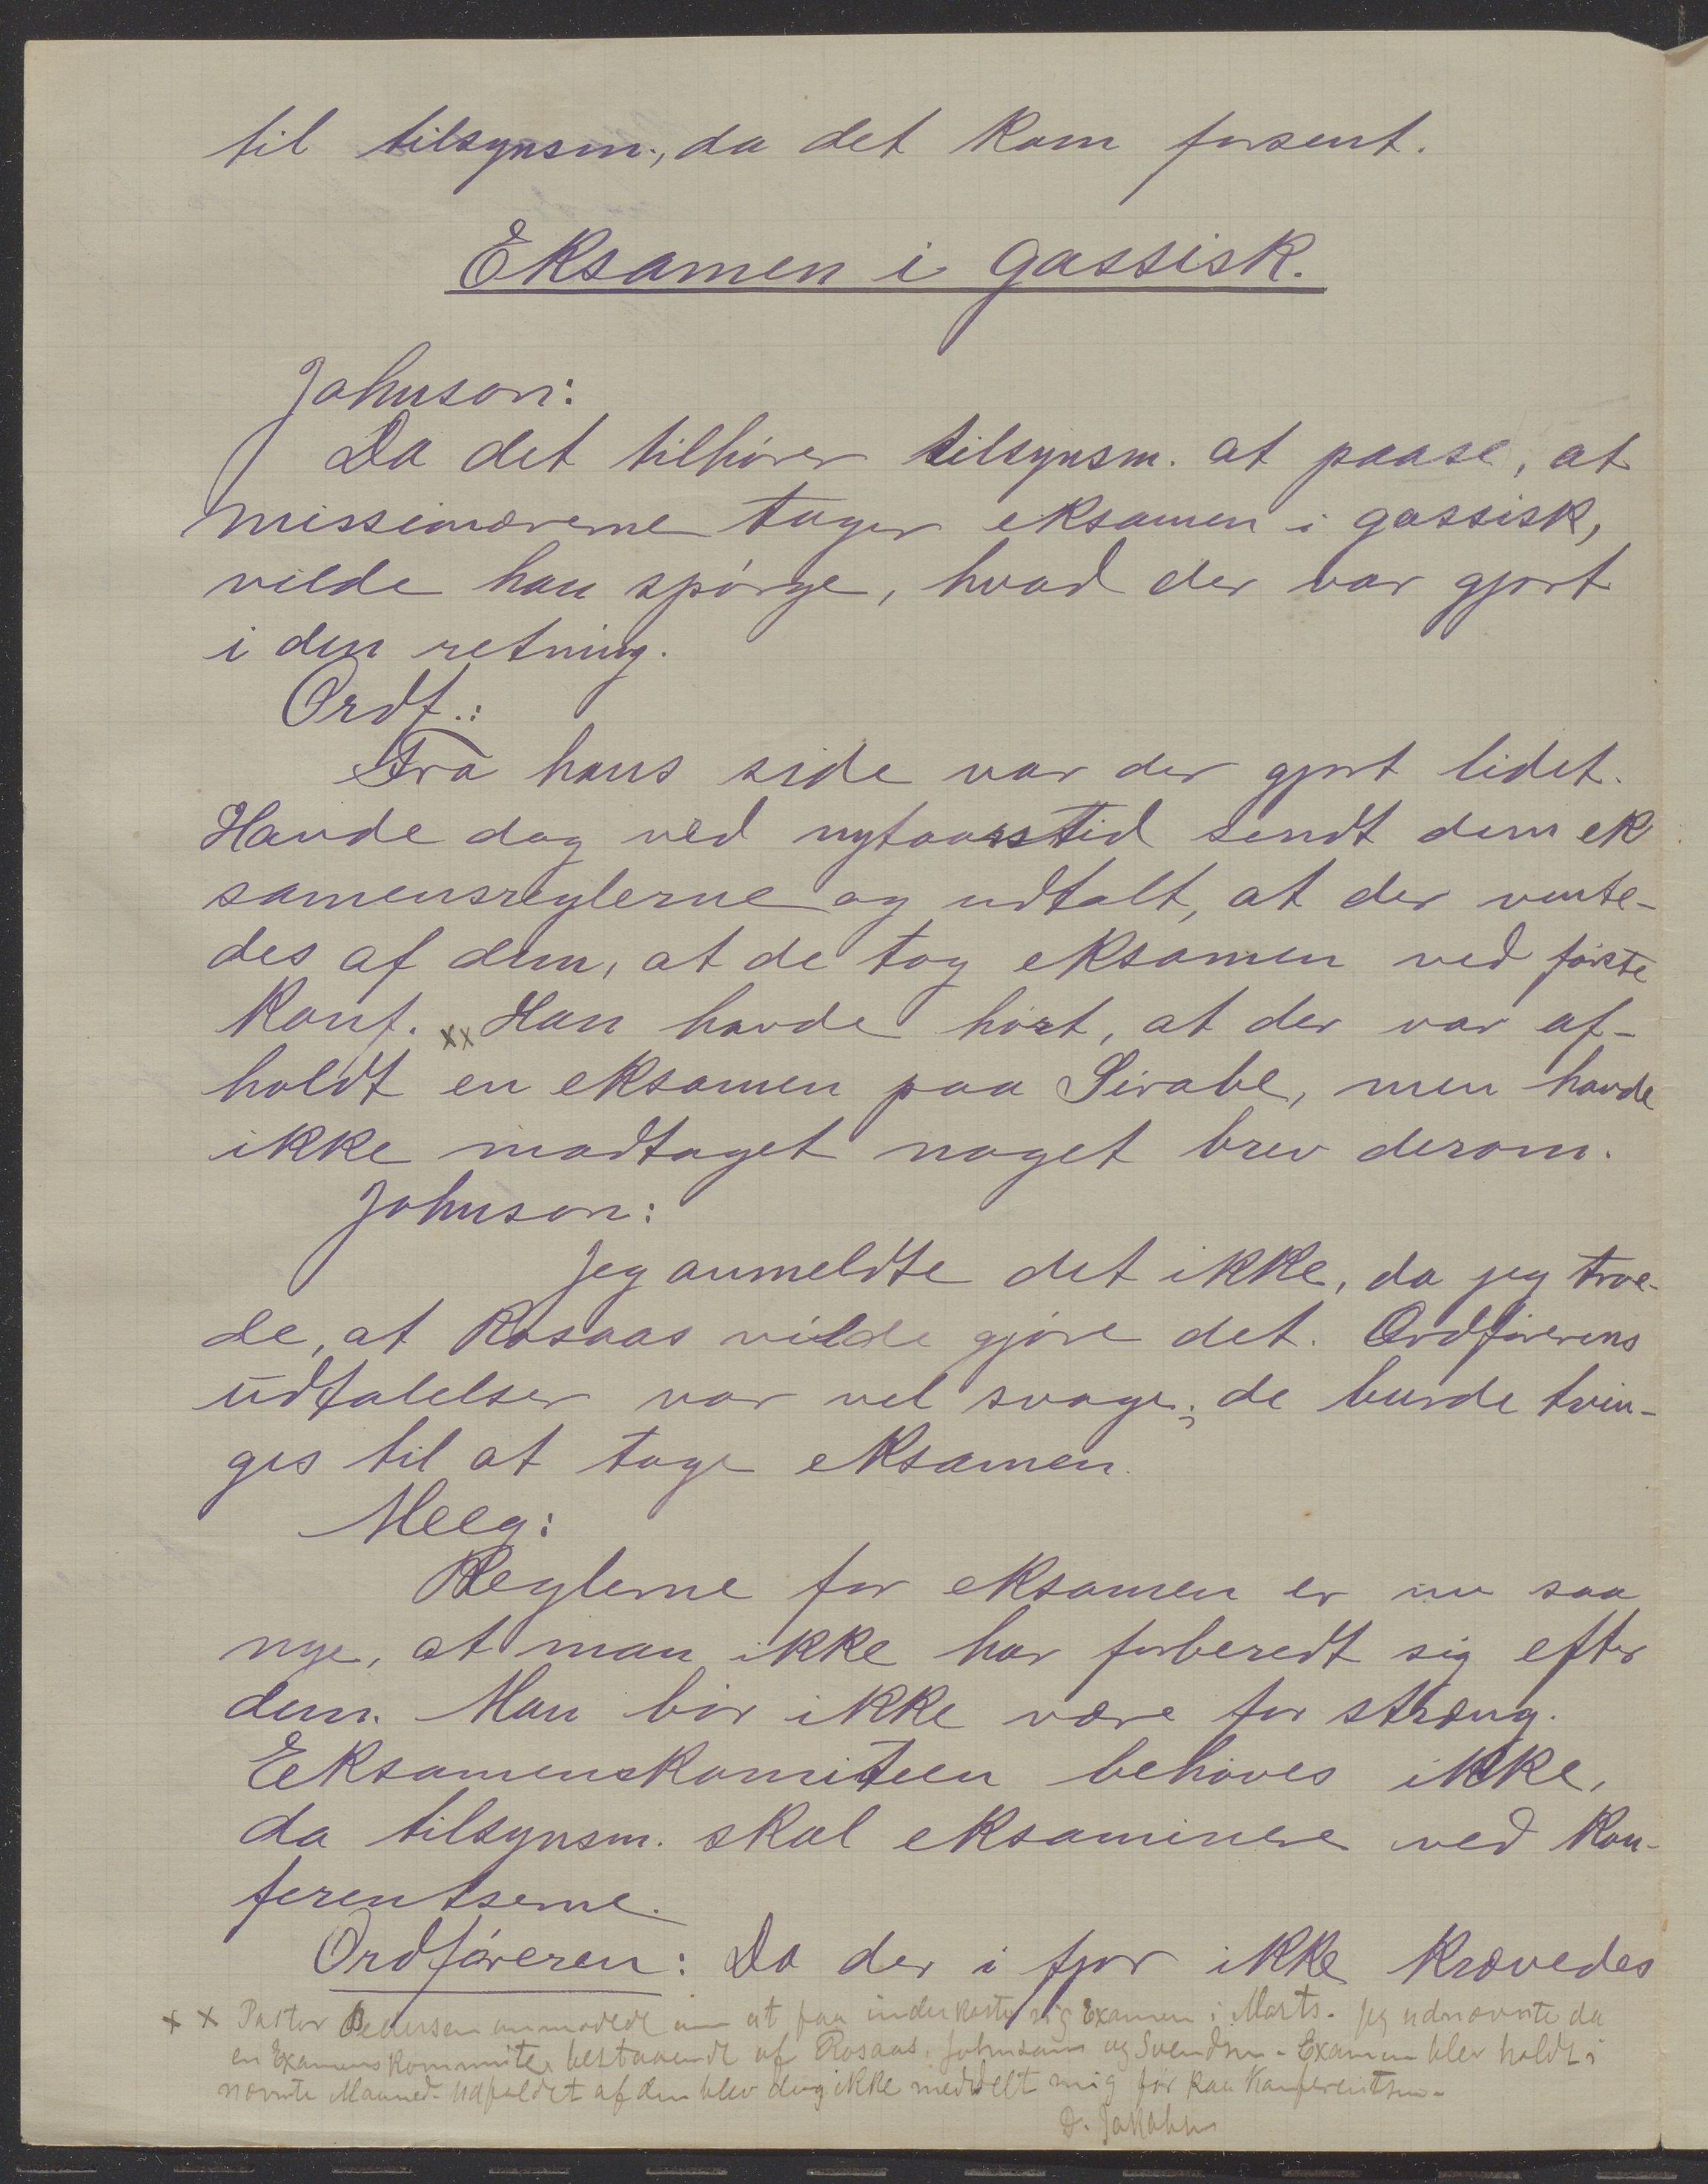 til tilsynsm., da det kom forsent.
Eksamen i gassisk.
Johnson:
Da det tilhører tilsynsm. at paase, at
missionærerne tager eksamen i gassisk,
vilde han spørge, hvad der var gjort
i den retning.
Ordf.:
Fra hans side var der gjort lidet.
Havde dog ved nytaarstid sendt dem ek
samensreglerne og udtalt, at der vente-
des af dem, at de tog eksamen ved første
Konf. xx Han havde hørt, at der var af-
holdt en eksamen paa Sirabe, men havde
ikke modtaget noget brev derom.
Johnson:
Jeg anmeldte det ikke, da jeg troe-
de, at Rosaas vilde gjøre det. Ordførerens
udtalelser var vel svage; de burde tvin-
ges til at tage eksamen.
Meeg:
Reglerne for eksamen er nu saa
nye, at man ikke har forberedt sig efter
dem. Man bør ikke være for stræng.
Eksamenskomiteen behøves ikke,
da tilsynsm. skal eksaminere ved Kon-
ferentserne.
Ordføreren: Da der i fjor ikke krævedes
x x Pastor Pedersen anmodede om at faa underkaste sig Examen i Marts. Jeg udnævnte da
en Examenskommitee bestaaende af Rosaas, Johnson og Svendsen. Examen blev holdt i
nævnte Maaned. Udfaldet af den blev dog ikke meddelt mig før paa Konferentsen.
D. Jakobsen